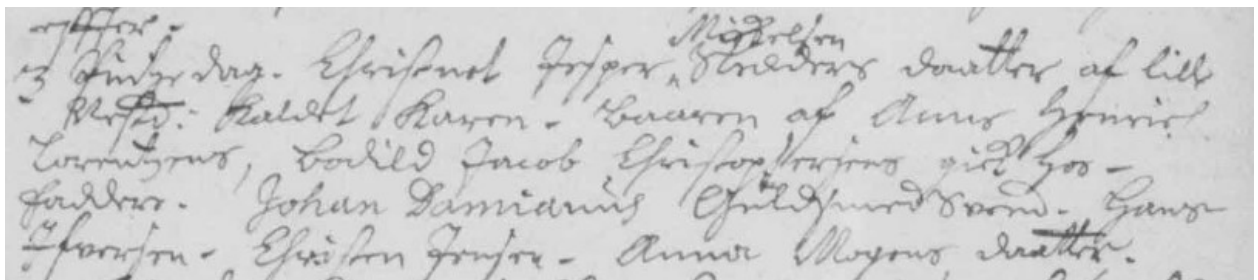 effter.
3 Pintzedag. Christnet Jesper Mickelsen Slesders daatter af lille
Kaldet Karen. baaren af Anne Henrich
Lorentzens, bodild Jacob Christophersens gick hos.
faddere. Johan Damianus Guldsmed Svend. Hans
Ifversen. Christen Jensen. Anna Mogens daatter.